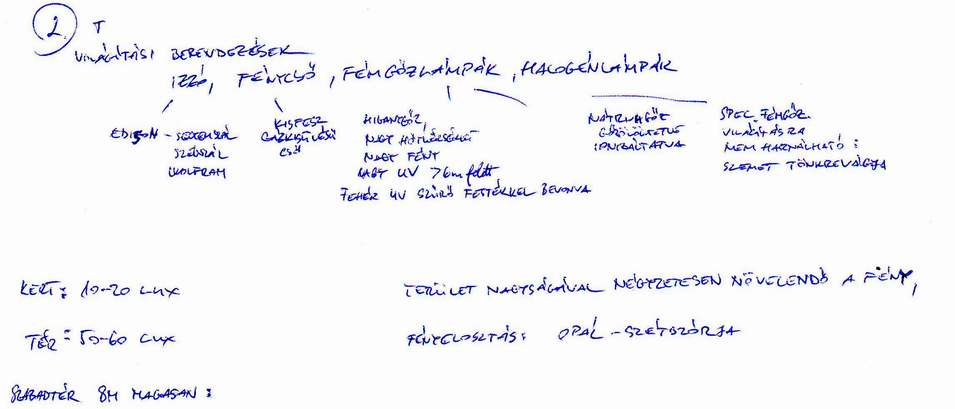 2. T
VILÁGÍTÁSI BERENDEZÉSEK
IZZÓ, FÉNYCSŐ, FÉMGŐZLÁMPÁK, HALOGÉNLÁMPÁK
EDISON - SZÉNSZÁL
WOLFRAM
KISFESZ
GÁZKISÜLÉSI
CSŐ
HIGANYGŐZ,
NAGY HŐMÉRSÉKLET
NAGY FÉNY
NAGY UV >6m felett
FEHÉR UV SZŰRŐ FESTÉKKEL BEVONVA
NÁTRIUMGŐZ
IONIZÁLTATVA
SPEC. FÉMGŐZ
VILÁGÍTÁSRA
NEM HASZNÁLHATÓ:
SZEMET TÖNKREVÁGJA
KERT: 10-20 LUX
TERÜLET NAGYSÁGÁVAL NÉGYZETESEN NÖVELENDŐ A FÉNY,
TÉR: 50-60 LUX
FÉNYELOSZTÁS: OPÁL - SZÉTSZÓRJA
SZABADTÉR 8M MAGASAN: